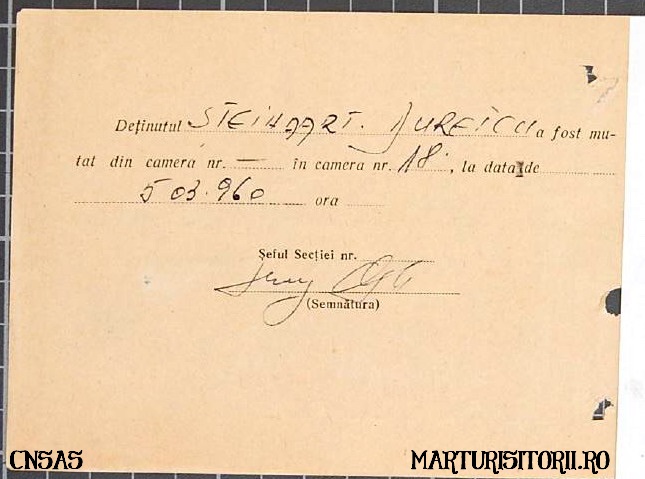 Deținutul STEINAART. AURELIU a fost mu-
tat din camera nr. — în camera nr. 18. , la data de
5 03.960 ora
Șeful Secției nr.
(Semnătura)
CNSAS
MARTURISITORII.RO